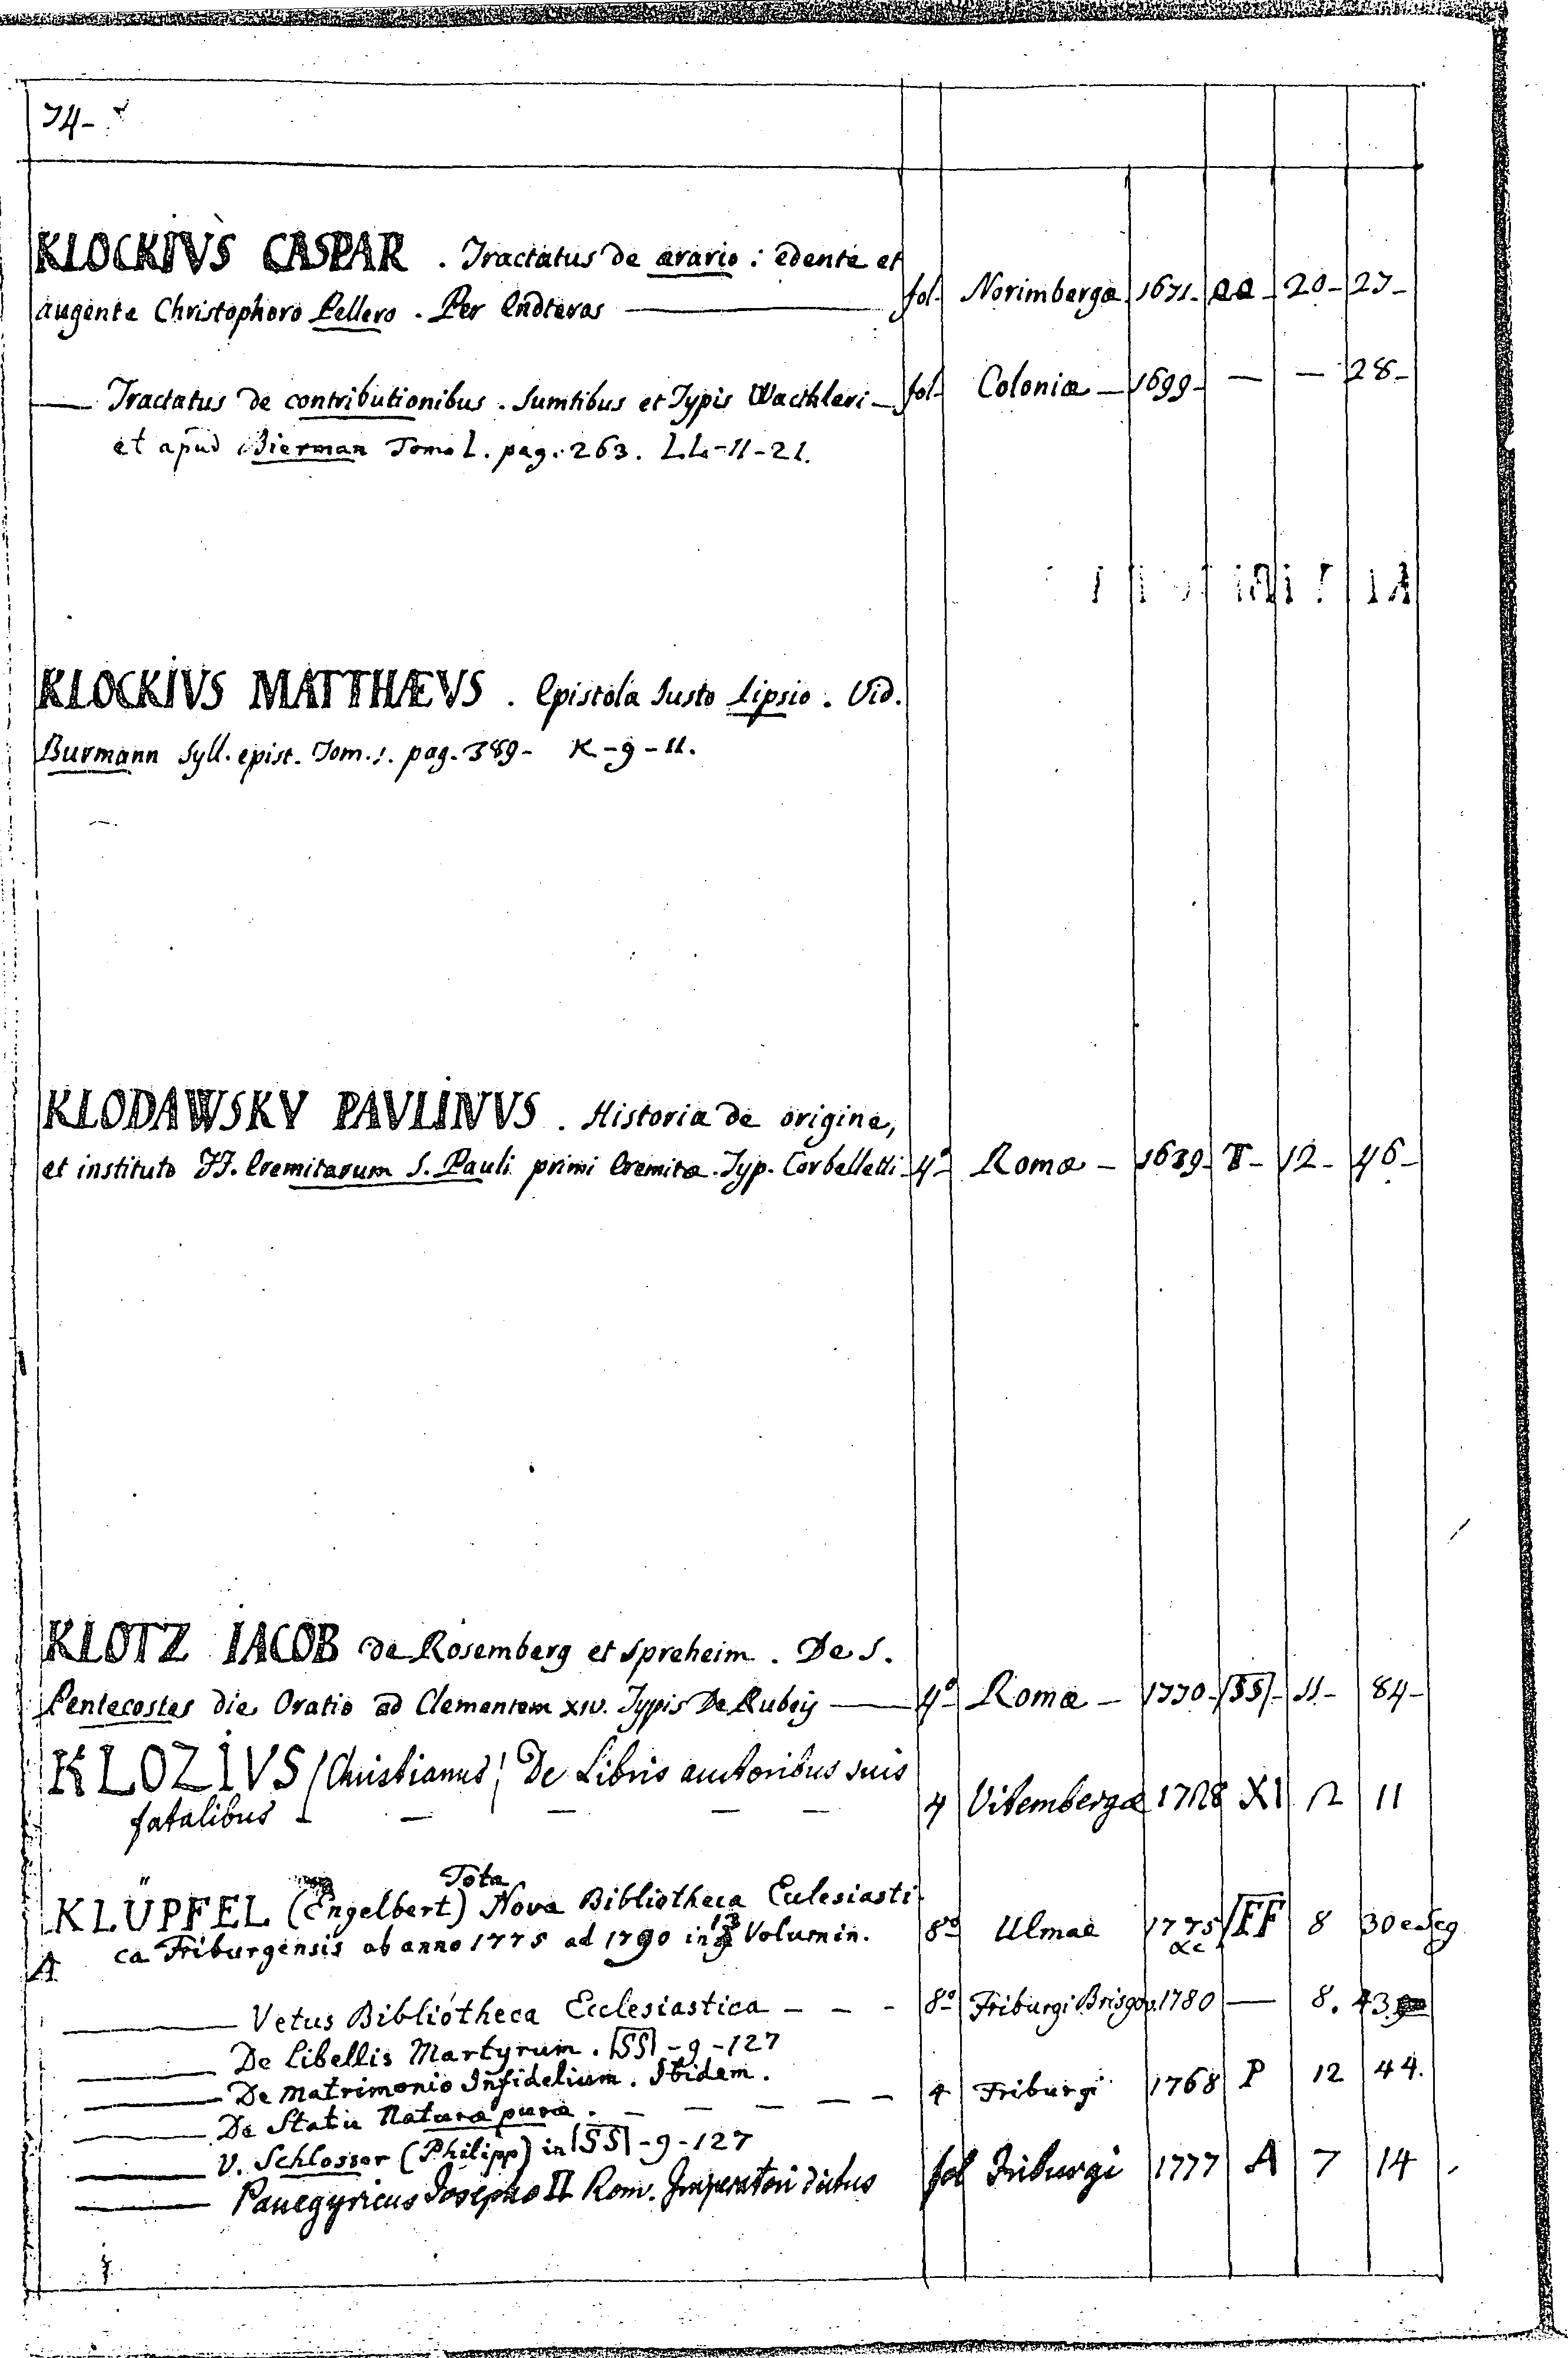 74-
KLOCKIVS CASPAR . Tractatus de ærario : edente et
augente Christophoro Pellero . Per Endteros fol. Norimbergæ 1671- AA - 20- 27-
Tractatus de contributionibus . Sumtibus et Typis Wacthleri fol. Coloniæ 1699- — — 28-
et apud Bierman Tomo I. pag. 263. LL-11-21.
KLOCKIVS MATTHÆVS . Epistola Justo Lipsio . Vid.
Burmann Syll. epist. Tom. 1. pag. 389- K-9-11.
KLODAWSKY PAVLINVS . Historia de origine,
et instituto FF. Eremitarum S. Pauli primi Eremitæ. Typ. Corbelletti 4º Romæ - 1639- T- 12- 46-
KLOTZ IACOB de Rosemberg et Spreheim . De S.
Pentecostes die Oratio ad Clementem XIV. Typis De Rubeis 4º Romæ - 1770- SS - 11- 84-
KLOZIVS (Christianus) De Libris auctoribus suis
fatalibus 4 Vitembergæ 1728 XI 12 11
Tota
KLÜPFEL (Engelbert) Nova Bibliotheca Eclesiasti
ca Friburgensis ab anno 1775 ad 1790 in 13 Volumin. 8º Ulmae 1775 &c FF 8 30 et seg
A
Vetus Bibliotheca Ecclesiastica - - - 8º Friburgi Brisgov. 1780 — 8. 43
De Libellis Martyrum . SS - 9 - 127
De matrimonio Infidelium . Ibidem .
De Statu Naturæ puræ . 4 Friburgi 1768 P 12 44.
V. Schlosser (Philipp) in SS - 9 - 127
Panegyricus Josepho II Rom. Imperatori dictus fol Friburgi 1777 A 7 14